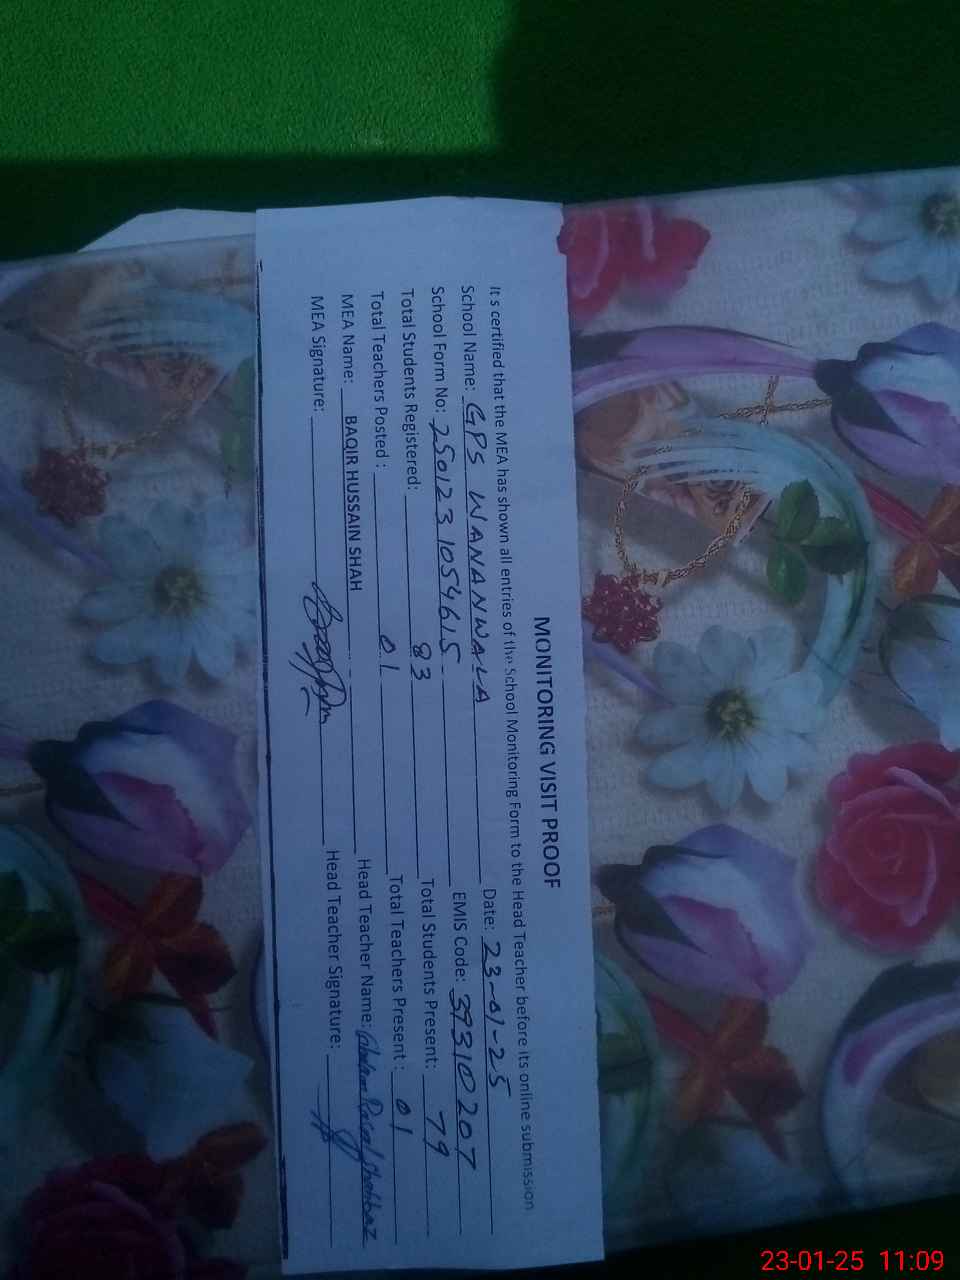 MONITORING VISIT PROOF
It s certified that the MEA has shown all entries of the School Monitoring Form to the Head Teacher before its online submission
School Name: GPS WANANWALA Date: 23-01-25
School Form No: 250123 1054615 EMIS Code: 37310207
Total Students Registered: 83 Total Students Present: 79
Total Teachers Posted : 01 Total Teachers Present : 01
MEA Name: BAQIR HUSSAIN SHAH Head Teacher Name: Ghulam Rasool Shahbaz
MEA Signature: Head Teacher Signature:
23-01-25 11:09